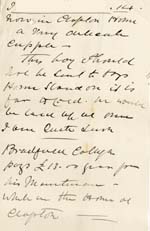 J. 164.
now in Clapton Home
a very delicate
cripple -
This boy should
not be sent to Boys
Home Standon it is
far to cold. He would
be laid up at once
I am quite sure
Bradfield College
pays £13. a year for
his Maintenance -
while in the Home at
Clapton -